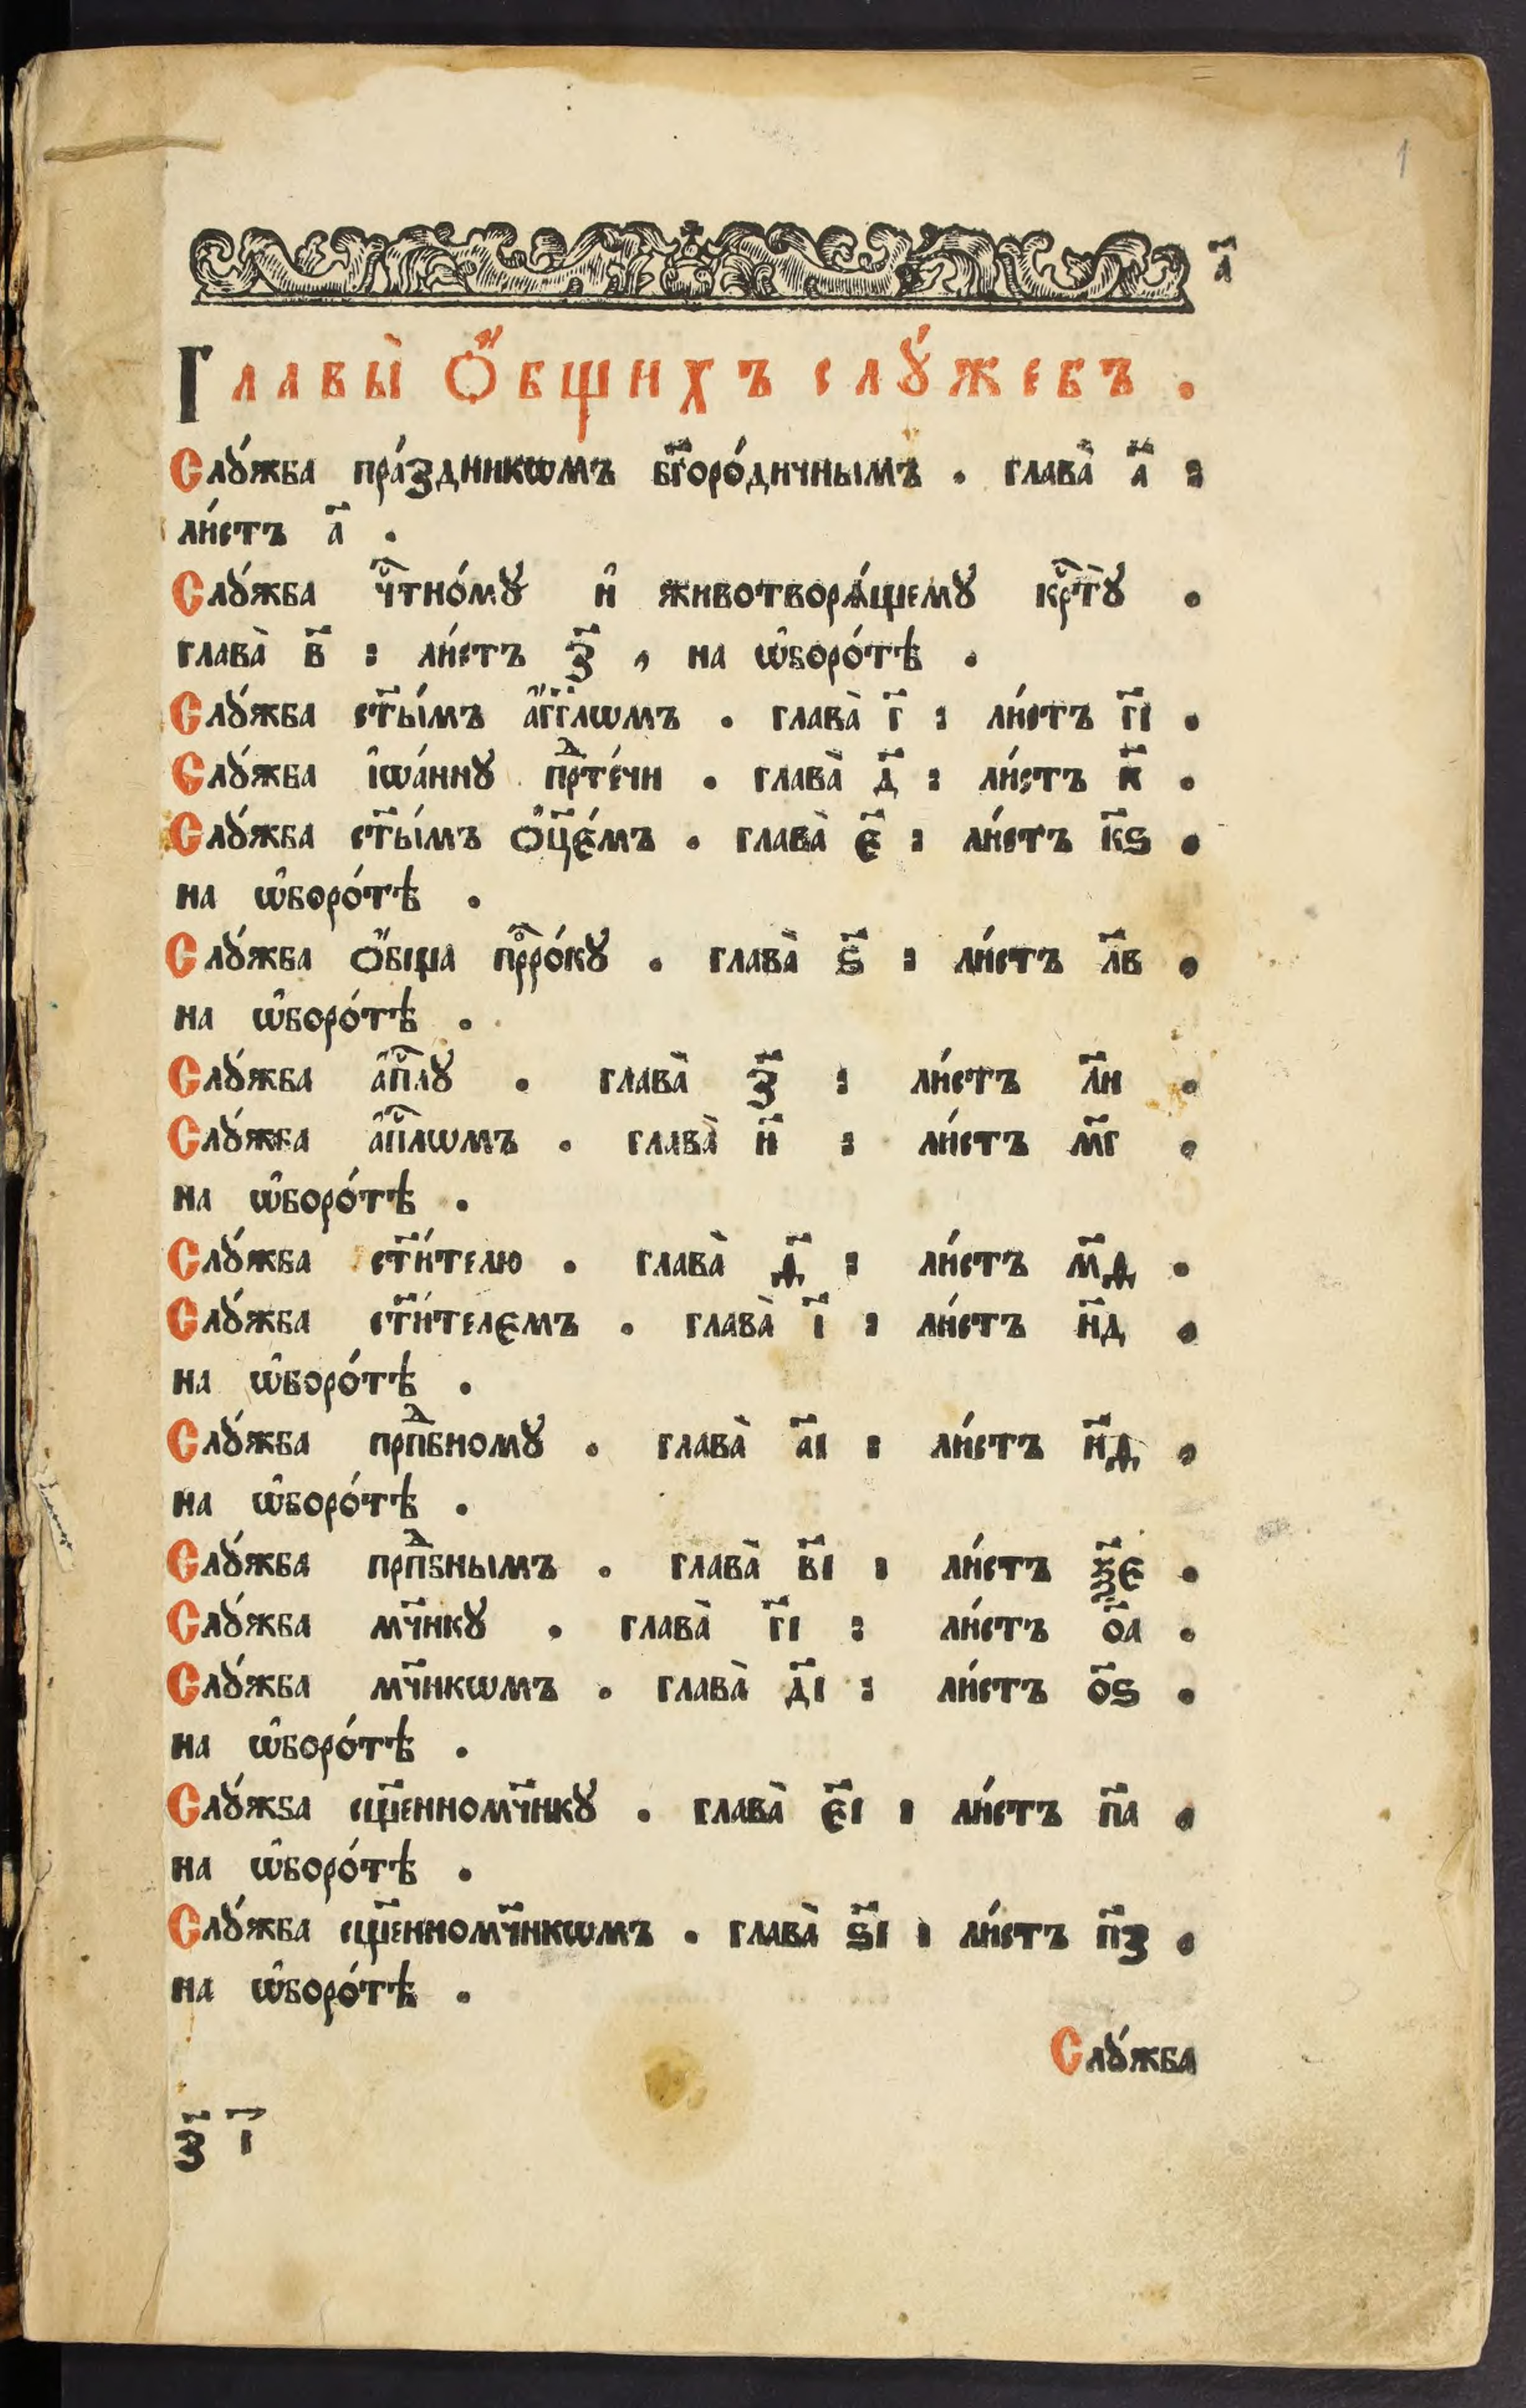 1
а҃
Главы̀ Ѻ҆́бщихъ слꙋ́жебъ .
Слꙋ́жба пра́здникѡмъ бг҃оро́дичнымъ . глава̀ а҃ :
ли́стъ а҃ .
Слꙋ́жба чⷭ҇тно́мꙋ и҆ животворѧ́щемꙋ крⷭ҇тꙋ̀ .
глава̀ в҃ : ли́стъ з҃ , на ѡ҆боро́тѣ .
Слꙋ́жба ст҃ы́мъ а҆́гг҃лѡмъ . глава̀ г҃ : ли́стъ г҃і .
Слꙋ́жба і҆ѡа́ннꙋ прⷣте́чи . глава̀ д҃ : ли́стъ к҃ .
Слꙋ́жба ст҃ы́мъ ѻ҆ц҃є́мъ . глава̀ є҃ : ли́стъ к҃ѕ .
на ѡ҆боро́тѣ .
Слꙋ́жба ѻ҆́бща прⷪ҇ро́кꙋ . глава̀ ѕ҃ : ли́стъ л҃в .
на ѡ҆боро́тѣ .
Слꙋ́жба а҆пⷭ҇лꙋ . глава̀ з҃ : ли́стъ л҃и .
Слꙋ́жба а҆пⷭ҇лѡмъ . глава̀ и҃ : ли́стъ м҃г .
на ѡ҆боро́тѣ .
Слꙋ́жба ст҃и́телю . глава̀ ѳ҃ : ли́стъ м҃ѳ .
Слꙋ́жба ст҃и́телємъ . глава̀ і҃ : ли́стъ н҃д .
на ѡ҆боро́тѣ .
Слꙋ́жба прпⷣбномꙋ . глава̀ а҃і : ли́стъ н҃ѳ .
на ѡ҆боро́тѣ .
Слꙋ́жба прпⷣбнымъ . глава̀ в҃і : ли́стъ ѯ҃є .
Слꙋ́жба мч҃нкꙋ . глава̀ г҃і : ли́стъ о҃а .
Слꙋ́жба мч҃нкѡмъ . глава̀ д҃і : ли́стъ о҃ѕ .
на ѡ҆боро́тѣ .
Слꙋ́жба сщ҃енномч҃нкꙋ . глава̀ є҃і : ли́стъ п҃а .
на ѡ҆боро́тѣ .
Слꙋ́жба сщ҃енномч҃нкѡмъ . глава̀ ѕ҃і : ли́стъ п҃з .
на ѡ҆боро́тѣ .
Слꙋ́жба
з҃ і҃